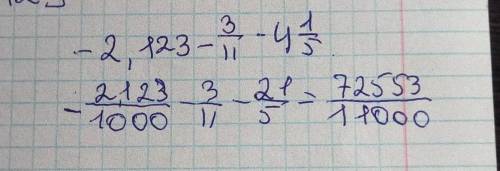 - 2,123 - 3/11 - 4 1/5
- 2123/1000 - 3/11 - 21/5 = 72553/11000